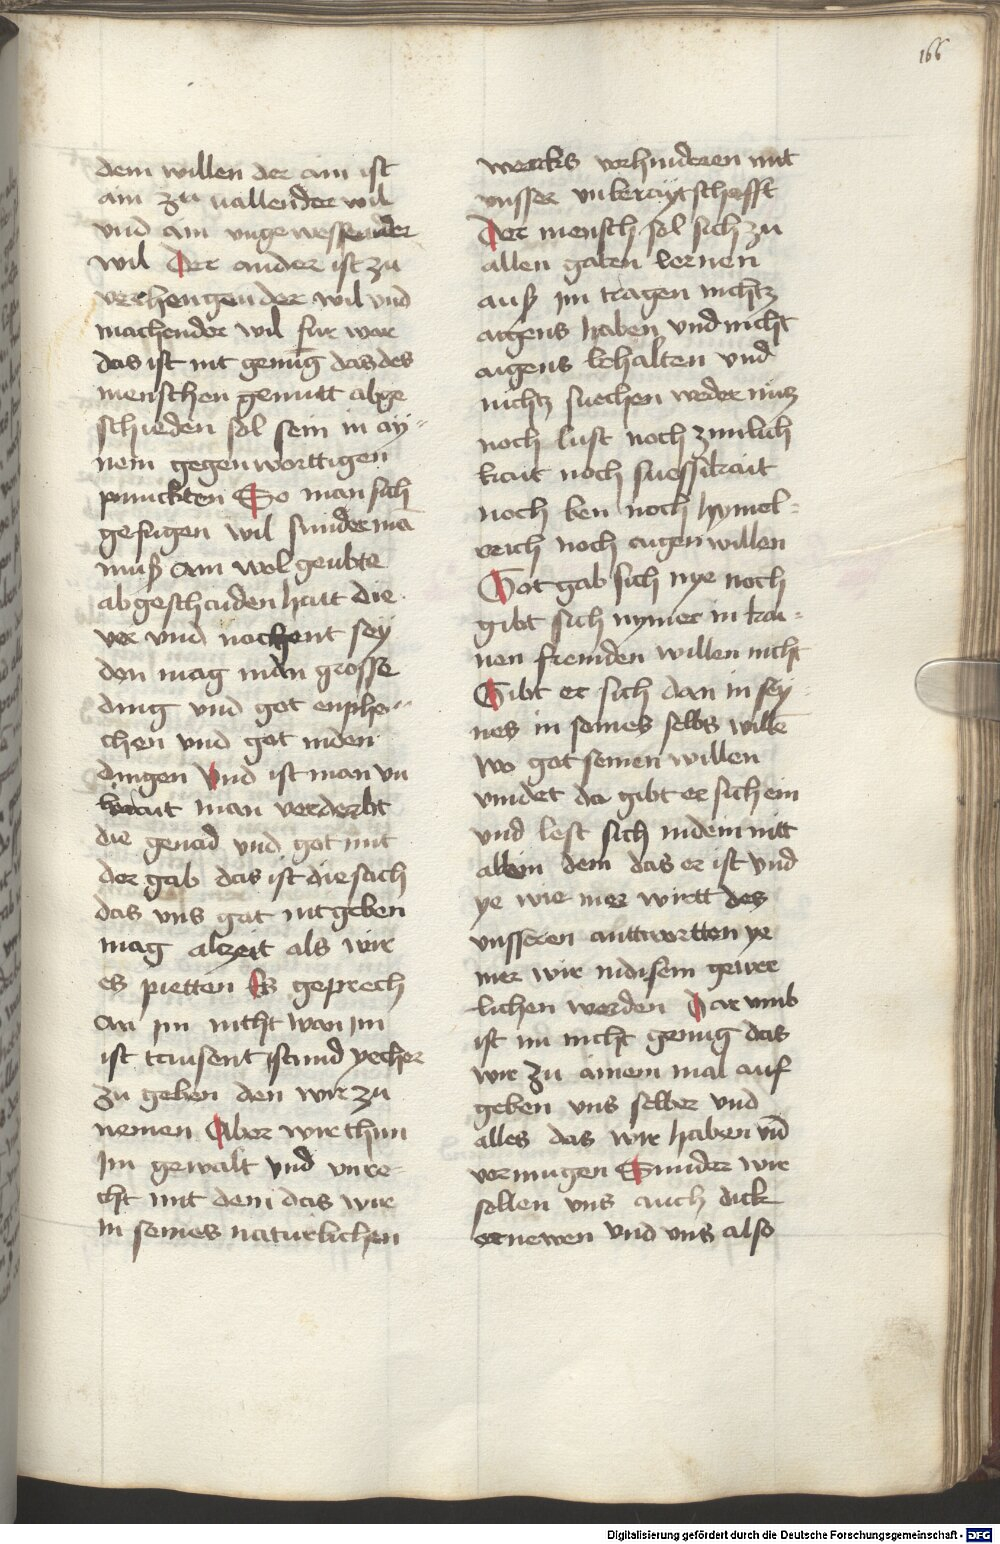 166
dem willen der ain ist
ain zu uallender wil
vnd ain vngewessender
wil Der ander ist zu
verhengender wil vnd
machender wil fur war
das ist nit genug das des
menschen gemutt abge
schieden sol sein in ay=
nem gegenworttigen
punckten So man sich
gefugen wil sunder mā
muß ain wol geubte
abgeschaidenhait die
vor vnd nochgent sey
den mag man grosse
ding vnd got enphe=
chen vnd got inden
dingen Vnd ist man vn
berait man verderbt
die genad vnd got mit
der gab das ist die sach
das vns got nit geben
mag alzeit als wir
es pietten Es geprech
an im nicht wan im
ist tausent stund yecher
zu geben den wir zu
nemen Aber wir thun
im gewalt vnd vnre-
cht mit dem das wir
in seines naturlichen
wercks verhinderen mit
vnsser vnberaytschafft
Der mensch sol sich zu
allen gaben lernen
auß im tragen nichtz
aigens haben vnd nicht
aigens behalten vnd
nichtz suechen weder nutz
noch lust noch zimlich
kait noch suessikait
noch len noch hymel=
reich noch aigen willen
Got gab sich nye noch
gibt sich nymer in kai=
nen fremden willen nicht
Gibt er sich dan in sey
nes in seines selbs wille
wo got seinen willen
vindet da gibt er sich ein
vnd lest sich in dein mitt
allem dem das er ist vnd
ye wir mer wirtt des
vnsseren anttwortten ye
mer wir in disem gewer
lichen werden Dar vmb
ist im nicht genug das
wir zu ainem mal auf
geben vns selber vnd
alles das wir haben vn̄
vermugen Sunder wir
sollen vns auch dick
ernewen vnd vns also
Digitalisierung gefördert durch die Deutsche Forschungsgemeinschaft - DFG